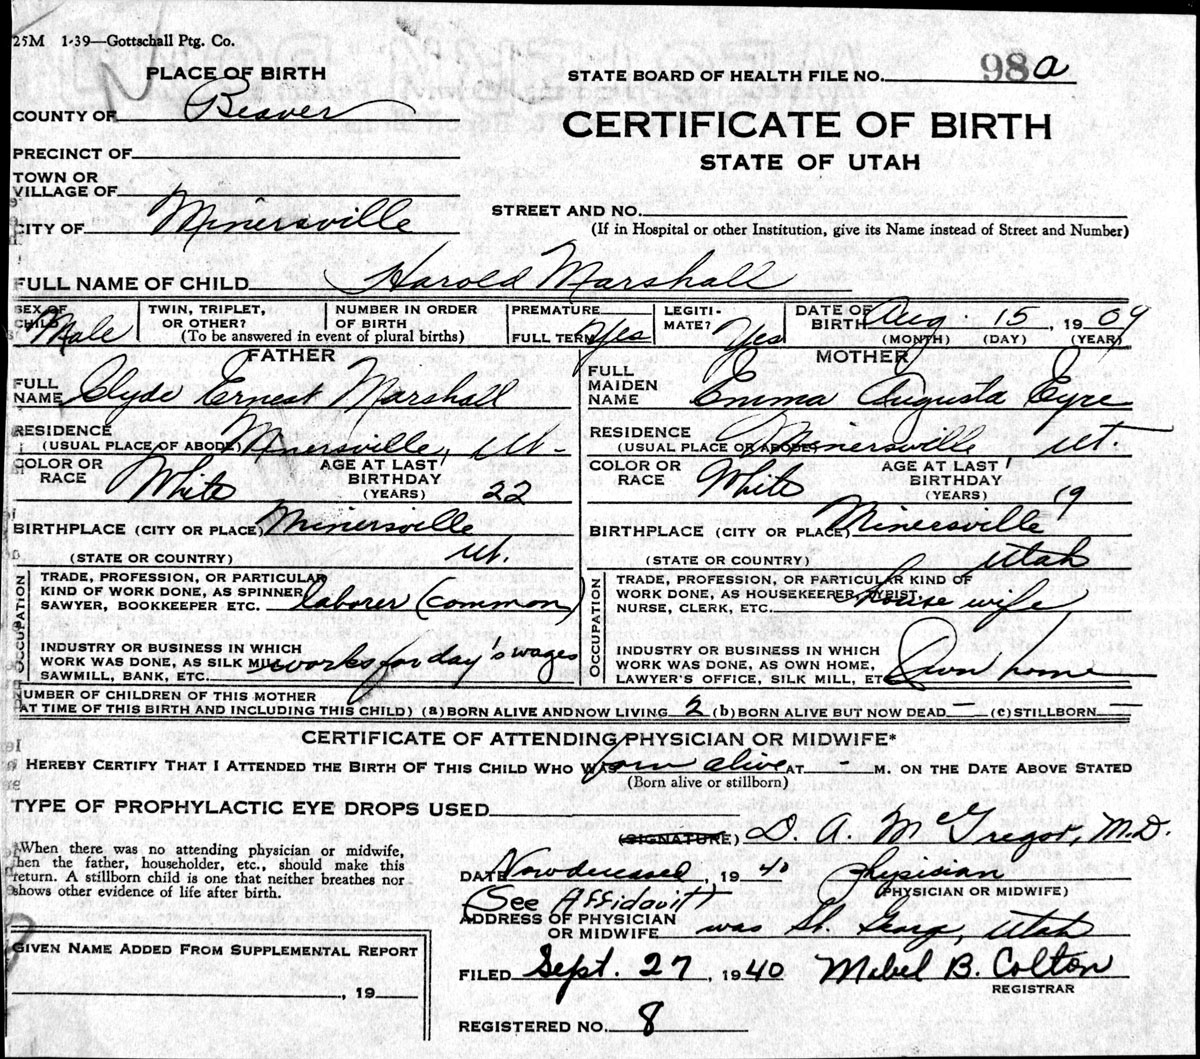 25M 1-39—Gottschall Ptg. Co.
PLACE OF BIRTH
STATE BOARD OF HEALTH FILE NO. 98a
COUNTY OF Beaver
CERTIFICATE OF BIRTH
PRECINCT OF
STATE OF UTAH
TOWN OR
VILLAGE OF
CITY OF Minersville
STREET AND NO.
(If in Hospital or other Institution, give its Name instead of Street and Number)
FULL NAME OF CHILD Harold Marshall
SEX OF CHILD Male
TWIN, TRIPLET, OR OTHER?
NUMBER IN ORDER OF BIRTH
(To be answered in event of plural births)
PREMATURE
FULL TERM Yes
LEGITI-
MATE? Yes
DATE OF
BIRTH Aug. 15, 1909
(MONTH) (DAY) (YEAR)
FATHER
FULL
NAME Clyde Ernest Marshall
RESIDENCE
(USUAL PLACE OF ABODE) Minersville, Ut.
COLOR OR
RACE White
AGE AT LAST
BIRTHDAY
(YEARS) 22
BIRTHPLACE (CITY OR PLACE) Minersville
(STATE OR COUNTRY) Ut.
OCCUPATION
TRADE, PROFESSION, OR PARTICULAR
KIND OF WORK DONE, AS SPINNER,
SAWYER, BOOKKEEPER ETC. laborer (common)
INDUSTRY OR BUSINESS IN WHICH
WORK WAS DONE, AS SILK MILL
SAWMILL, BANK, ETC. works for day's wages
MOTHER
FULL
MAIDEN
NAME Emma Augusta Eyre
RESIDENCE
(USUAL PLACE OR ABODE) Minersville Ut.
COLOR OR
RACE White
AGE AT LAST
BIRTHDAY
(YEARS) 19
BIRTHPLACE (CITY OR PLACE) Minersville
(STATE OR COUNTRY) Utah
OCCUPATION
TRADE, PROFESSION, OR PARTICULAR KIND OF
WORK DONE, AS HOUSEKEEPER, TYPIST,
NURSE, CLERK, ETC. house wife
INDUSTRY OR BUSINESS IN WHICH
WORK WAS DONE, AS OWN HOME,
LAWYER'S OFFICE, SILK MILL, ETC. Own home
NUMBER OF CHILDREN OF THIS MOTHER
AT TIME OF THIS BIRTH AND INCLUDING THIS CHILD) (a) BORN ALIVE AND NOW LIVING 2 (b) BORN ALIVE BUT NOW DEAD — (c) STILLBORN —
CERTIFICATE OF ATTENDING PHYSICIAN OR MIDWIFE*
HEREBY CERTIFY THAT I ATTENDED THE BIRTH OF THIS CHILD WHO WAS born alive AT - M. ON THE DATE ABOVE STATED
(Born alive or stillborn)
TYPE OF PROPHYLACTIC EYE DROPS USED
(SIGNATURE) D. A. McGregor, M.D.
*When there was no attending physician or midwife,
then the father, householder, etc., should make this
return. A stillborn child is one that neither breathes nor
shows other evidence of life after birth.
DATE Now deceased, 1940 Physician
(PHYSICIAN OR MIDWIFE)
(See Affidavit)
ADDRESS OF PHYSICIAN
OR MIDWIFE was St. George, Utah
GIVEN NAME ADDED FROM SUPPLEMENTAL REPORT
, 19
FILED Sept. 27, 1940 Mabel B. Colton
REGISTRAR
REGISTERED NO. 8